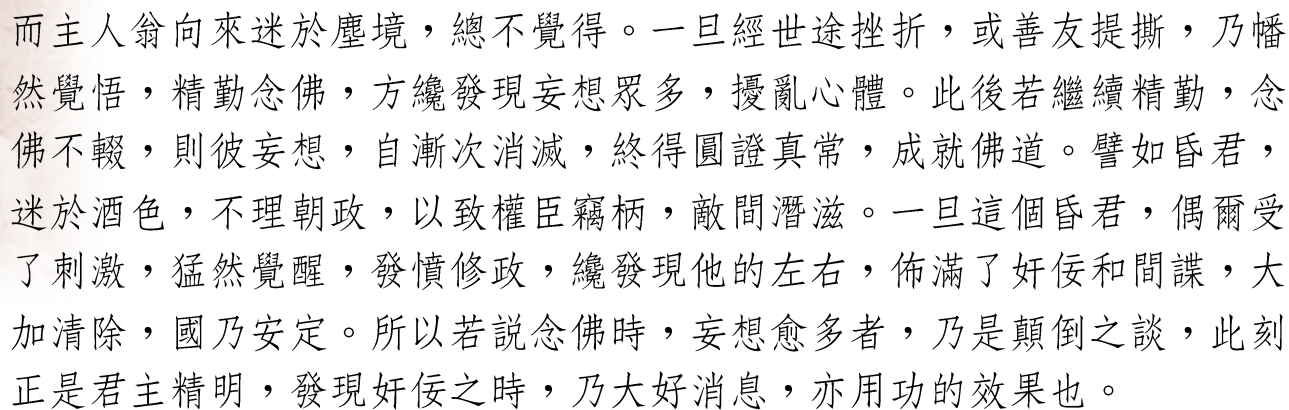 而主人翁向來迷於塵境，總不覺得。一旦經世途挫折，或善友提撕，乃幡
然覺悟，精勤念佛，方纔發現妄想眾多，擾亂心體。此後若繼續精勤，念
佛不輟，則彼妄想，自漸次消滅，終得圓證真常，成就佛道。譬如昏君，
迷於酒色，不理朝政，以致權臣竊柄，敵間潛滋。一旦這個昏君，偶爾受
了刺激，猛然覺醒，發憤修政，纔發現他的左右，佈滿了奸佞和間諜，大
加清除，國乃安定。所以若說念佛時，妄想愈多者，乃是顛倒之談，此刻
正是君主精明，發現奸佞之時，乃大好消息，亦用功的效果也。